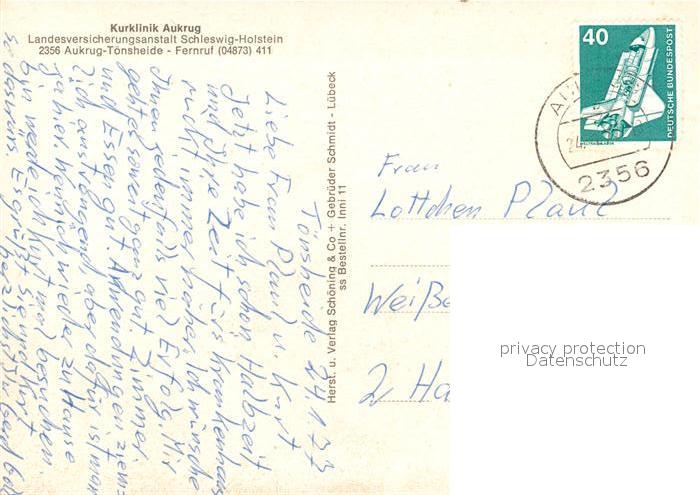 Kurklinik Aukrug
Landesversicherungsanstalt Schleswig-Holstein
2356 Aukrug-Tönsheide - Fernruf (04873) 411
Tönsheide 24.1.77
Liebe Frau Plaul u. Kurt
Jetzt habe ich schon Halbzeit
und Ihre Zeit fürs Krankenhaus
rückt immer näher. Ich wünsche
Ihnen jedenfalls viel Erfolg. Mir
geht es soweit ganz gut. Zimmer
und Essen gut. Anwendungen ziem=
lich anstrengend, aber dafür ist man
ja hier. Wenn ich wieder zu Hause
bin werde ich Kurt mal besuchen.
Es grüßt Sie und Kurt
herzlichst
Herst. u. Verlag Schöning & Co + Gebrüder Schmidt - Lübeck
ss Bestellnr. Inni 11
40
DEUTSCHE BUNDESPOST
2356
Frau
Lottchen Plaul
Weiße
2 Ha
privacy protection
Datenschutz